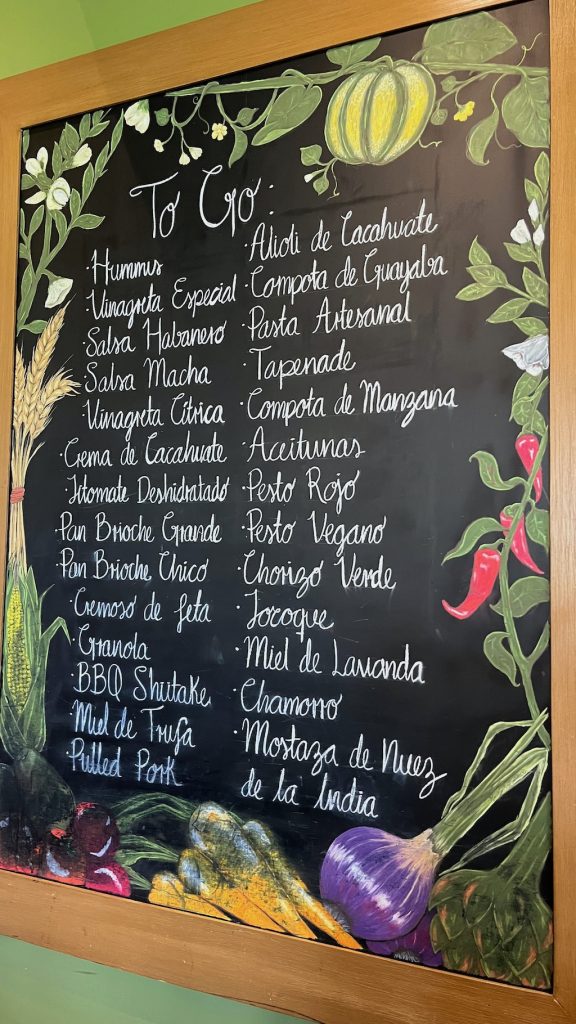 To Go:
· Hummus
· Vinagreta Especial
· Salsa Habanero
· Salsa Macha
· Vinagreta Cítrica
· Crema de Cacahuate
· Jitomate Deshidratado
· Pan Brioche Grande
· Pan Brioche Chico
· Cremoso de feta
· Granola
· BBQ Shiitake
· Miel de Trufa
· Pulled Pork
· Alioli de Cacahuate
· Compota de Guayaba
· Pasta Artesanal
· Tapenade
· Compota de Manzana
· Aceitunas
· Pesto Rojo
· Pesto Vegano
· Chorizo Verde
· Jocoque
· Miel de Lavanda
· Chamorro
· Mostaza de Nuez
de la India